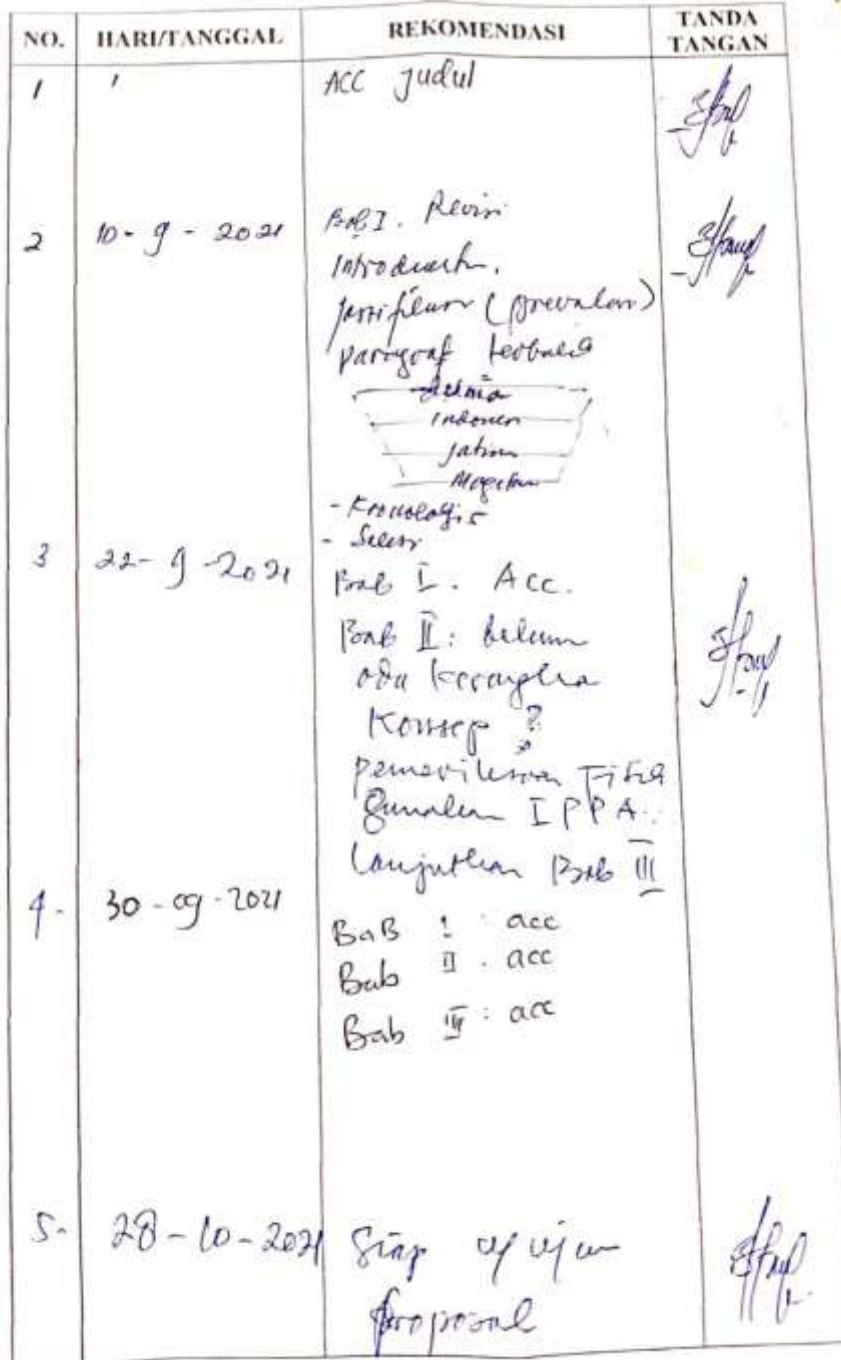 NO. HARI/TANGGAL REKOMENDASI TANDA TANGAN
1 ACC Judul
2 10-9-2021 Bab I. Revisi
Introduction.
(prevalensi)
paragraf terbalik
Dunia
Indonesia
Jatim
Magetan
- Kronologis
- Solusi
3 22-9-2021 Bab I. Acc.
Bab II: belum
ada kerangka
Konsep ?
pemeriksaan Fisik
gunakan IPPA.
lanjutkan Bab III
4. 30-09-2021 BaB I : acc
Bab II . acc
Bab III : acc
5. 28-10-2021 Siap ujian
proposal